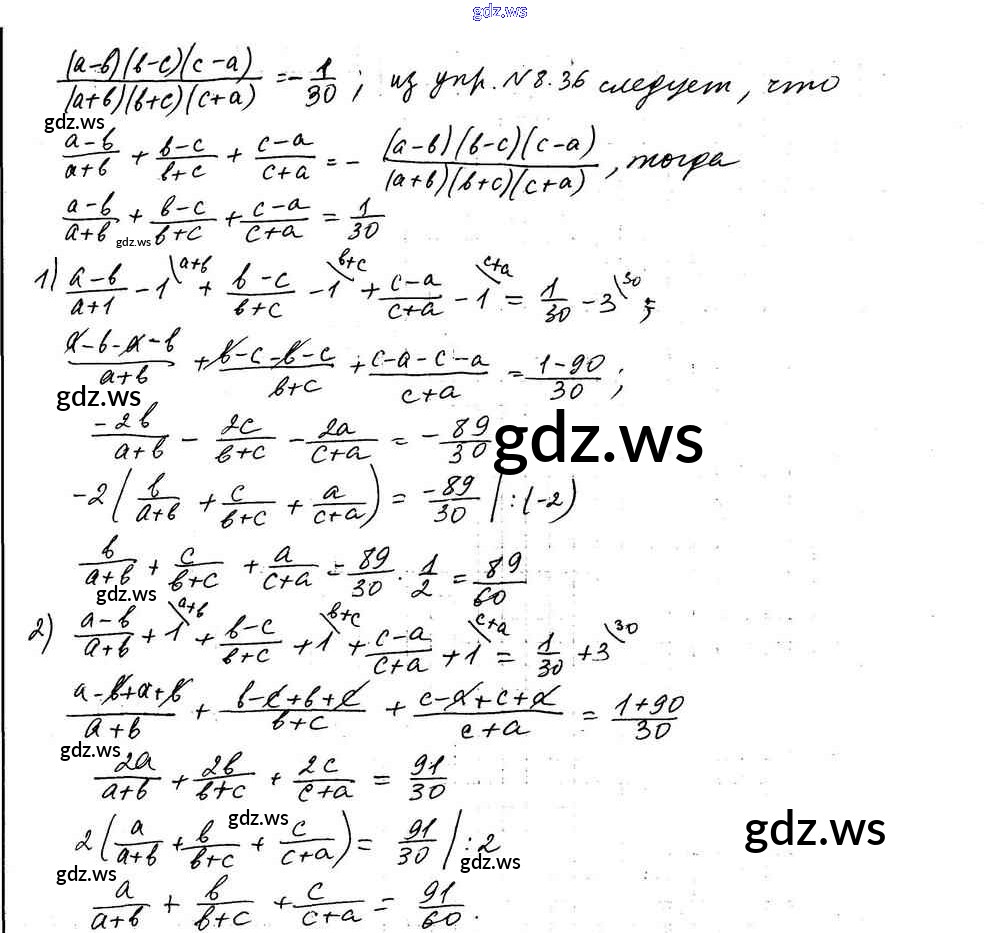 gdz.ws
(a-b)(b-c)(c-a)/(a+b)(b+c)(c+a) = -1/30; из упр. №8.36 следует, что
gdz.ws
(a-b)/(a+b) + (b-c)/(b+c) + (c-a)/(c+a) = - (a-b)(b-c)(c-a)/(a+b)(b+c)(c+a), тогда
(a-b)/(a+b) + (b-c)/(b+c) + (c-a)/(c+a) = 1/30
gdz.ws
1) (a-b)/(a+1) - 1\a+b + (b-c)/(b+c) - 1\b+c + (c-a)/(c+a) - 1\c+a = 1/30 - 3\30;
(a-b-a-b)/(a+b) + (b-c-b-c)/(b+c) + (c-a-c-a)/(c+a) = (1-90)/30;
gdz.ws
-2b/(a+b) - 2c/(b+c) - 2a/(c+a) = -89/30
gdz.ws
-2(b/(a+b) + c/(b+c) + a/(c+a)) = -89/30 |:(-2)
b/(a+b) + c/(b+c) + a/(c+a) = 89/30 · 1/2 = 89/60
gdz.ws
2) (a-b)/(a+b) + 1\a+b + (b-c)/(b+c) + 1\b+c + (c-a)/(c+a) + 1\c+a = 1/30 + 3\30
(a-b+a+b)/(a+b) + (b-c+b+c)/(b+c) + (c-a+c+a)/(c+a) = (1+90)/30
gdz.ws
2a/(a+b) + 2b/(b+c) + 2c/(c+a) = 91/30
gdz.ws
gdz.ws
2(a/(a+b) + b/(b+c) + c/(c+a)) = 91/30 |:2
gdz.ws
gdz.ws
a/(a+b) + b/(b+c) + c/(c+a) = 91/60.